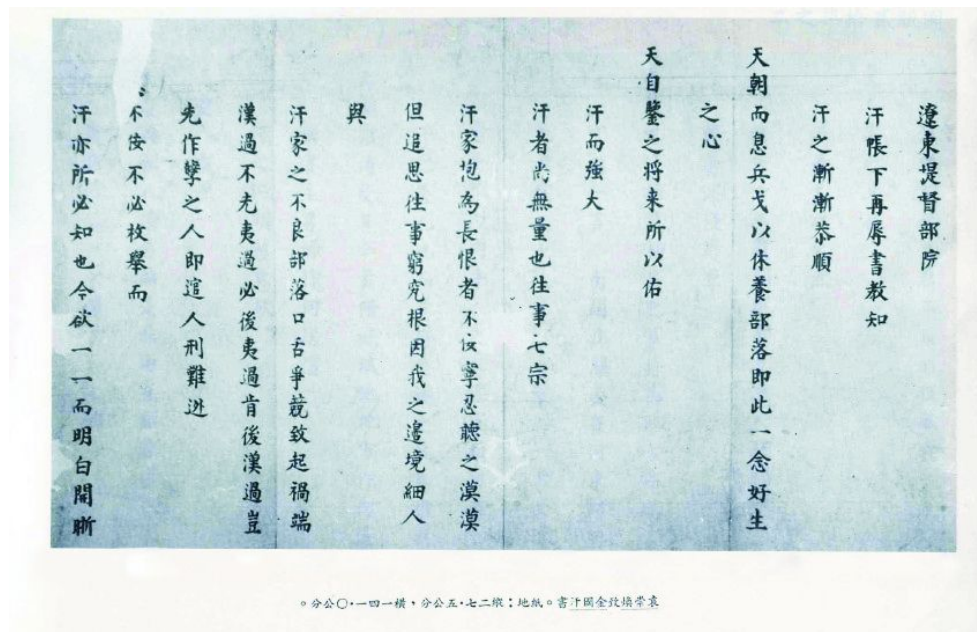 遼東提督部院
汗帳下再辱書教知
汗之漸漸恭順
天朝而息兵戈以休養部落即此一念好生
之心
天自鑒之将来所以佑
汗而強大
汗者尚無量也往事七宗
汗家抱為長恨者不佞寧忍聽之漠漠
但追思往事窮究根因我之邉境細人
與
汗家之不良部落口舌爭競致起禍端
漢過不先夷過必後夷過肯後漢過豈
先作孽之人即逭人刑難迯
不佞不必枚舉而
汗亦所必知也今欲一一而明白開晣
袁崇煥致金國汗書。紙地：縱二七·五公分，橫一四一·〇公分。